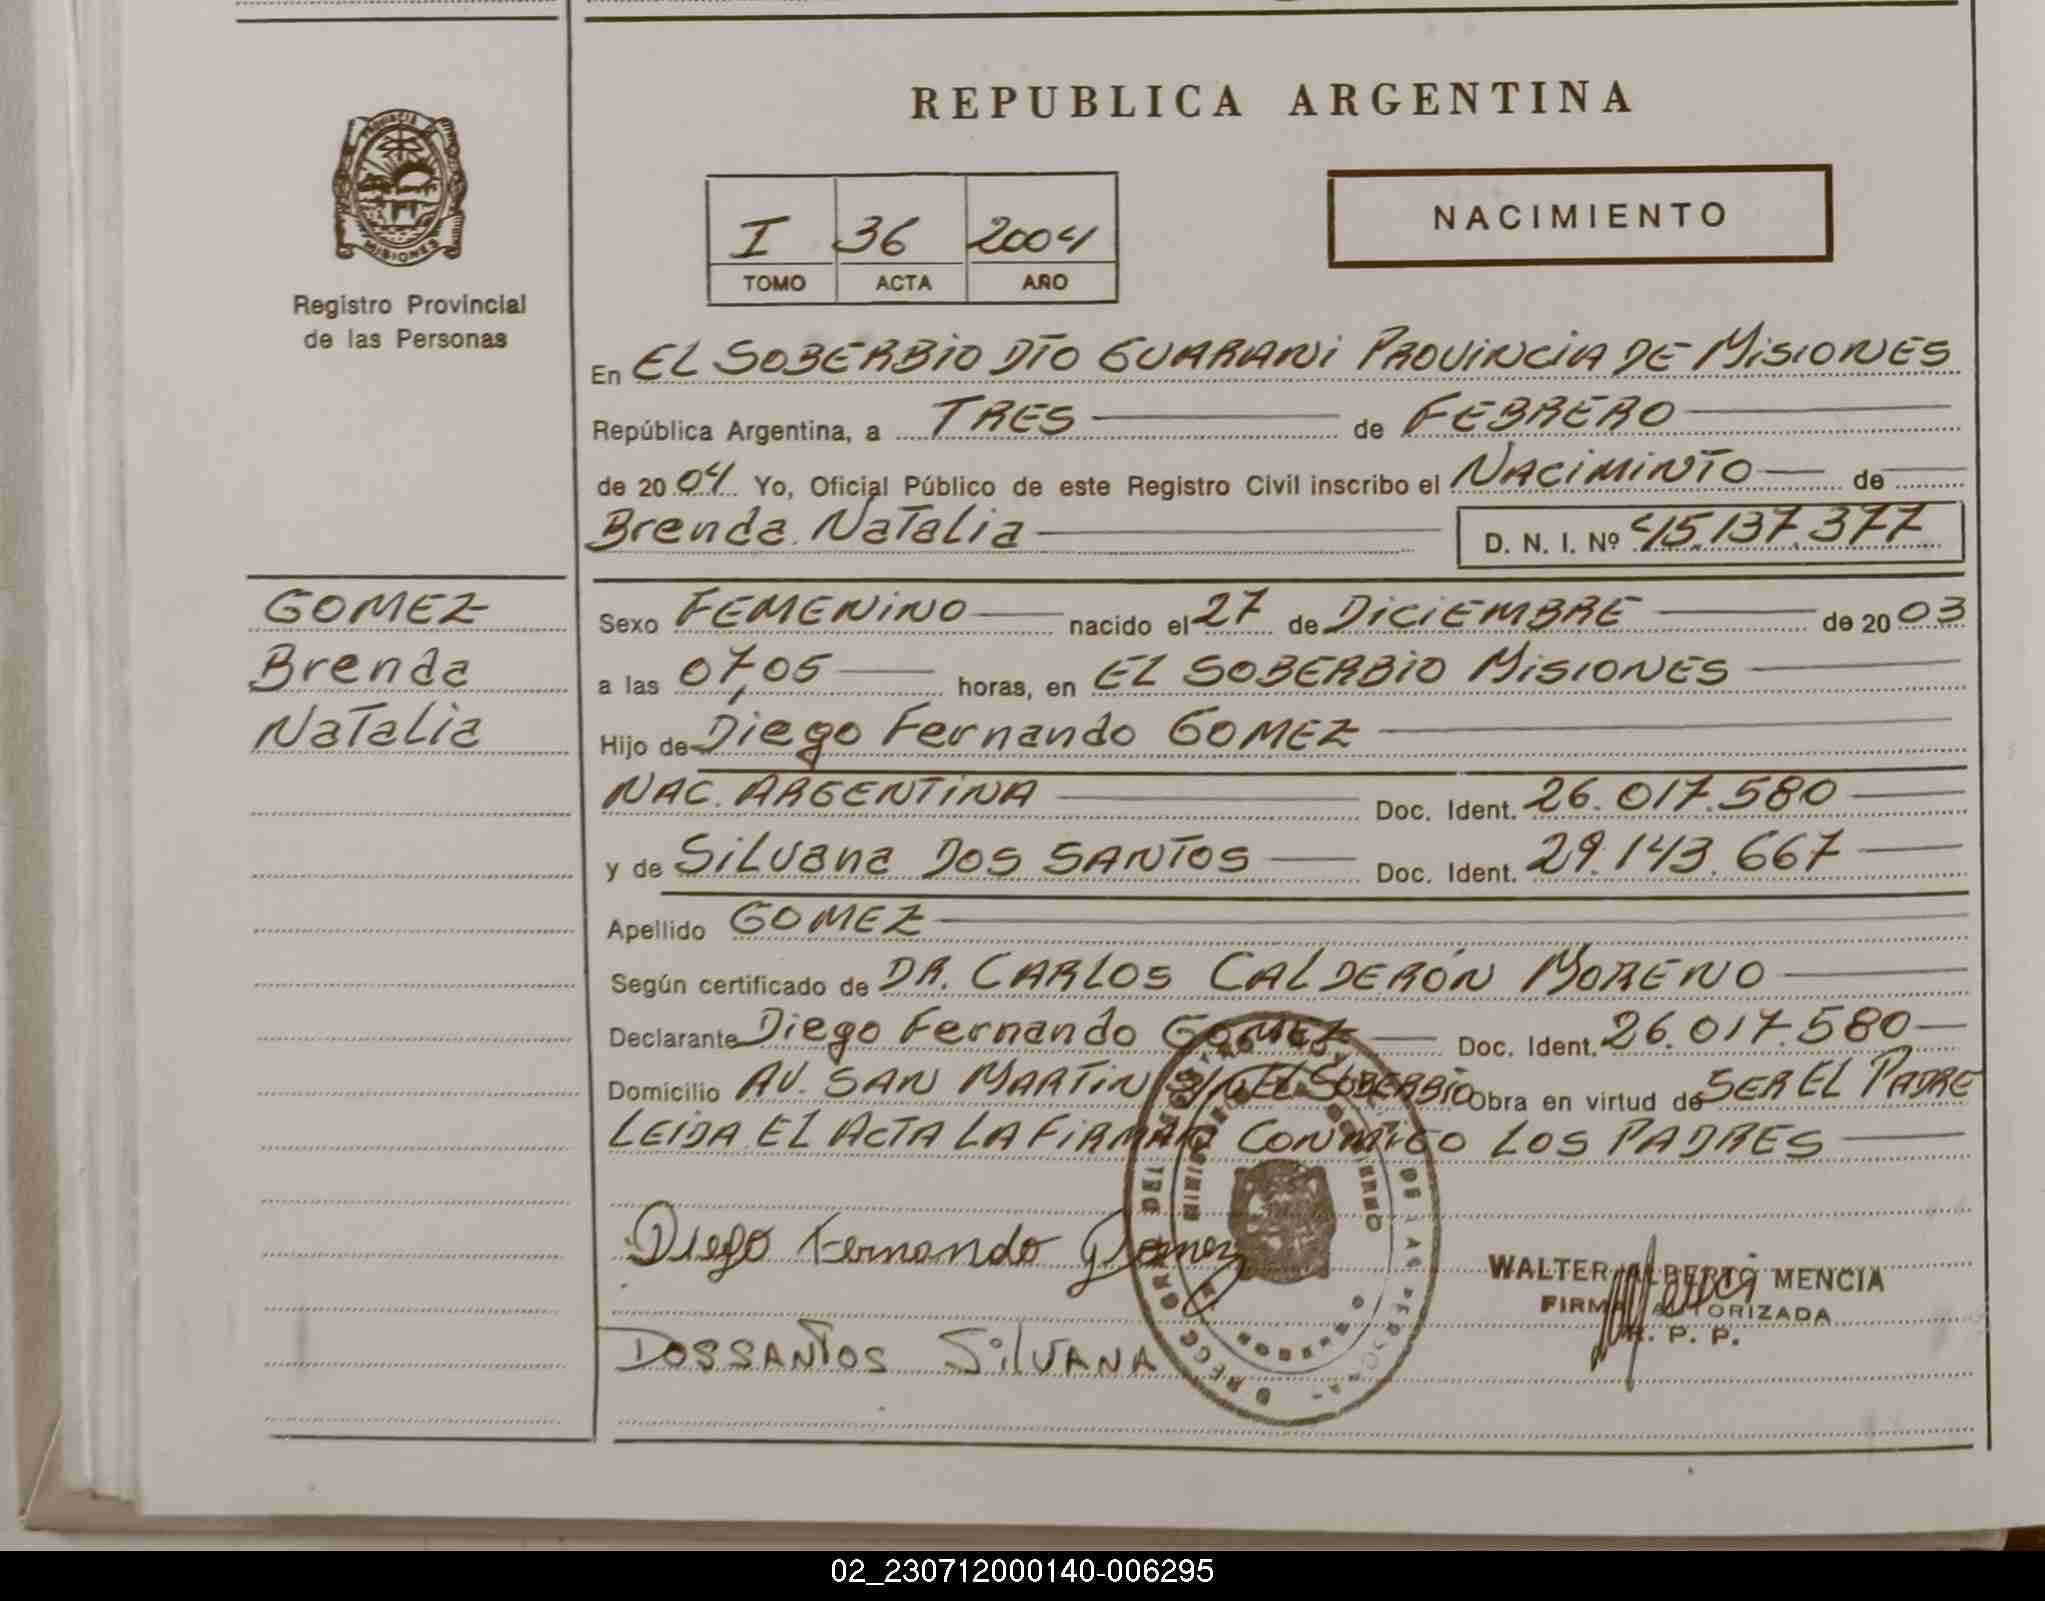 REPUBLICA ARGENTINA
PROVINCIA DE MISIONES
Registro Provincial
de las Personas
I 36 2004
TOMO ACTA AÑO
NACIMIENTO
En EL SOBERBIO DTO GUARANI PROVINCIA DE MISIONES
República Argentina, a TRES de FEBRERO
de 2004 Yo, Oficial Público de este Registro Civil inscribo el NACIMINTO de
Brenda Natalia D. N. I. Nº 45.137.377
GOMEZ
Brenda
Natalia
Sexo FEMENINO nacido el 27 de DICIEMBRE de 2003
a las 07,05 horas, en EL SOBERBIO MISIONES
Hijo de Diego Fernando GOMEZ
NAC. ARGENTINA Doc. Ident. 26.017.580
y de Silvana DOS SANTOS Doc. Ident. 29.143.667
Apellido GOMEZ
Según certificado de DR. CARLOS CALDERÓN MORENO
Declarante Diego Fernando GOMEZ Doc. Ident. 26.017.580
Domicilio AV. SAN MARTIN S/N EL SOBERBIO Obra en virtud de SER EL PADRE
LEIDA EL ACTA LA FIRMAN CONMIGO LOS PADRES
Diego Fernando Gomez
WALTER ALBERTO MENCIA
FIRMA AUTORIZADA
R. P. P.
DOSSANTOS SILVANA
02_230712000140-006295